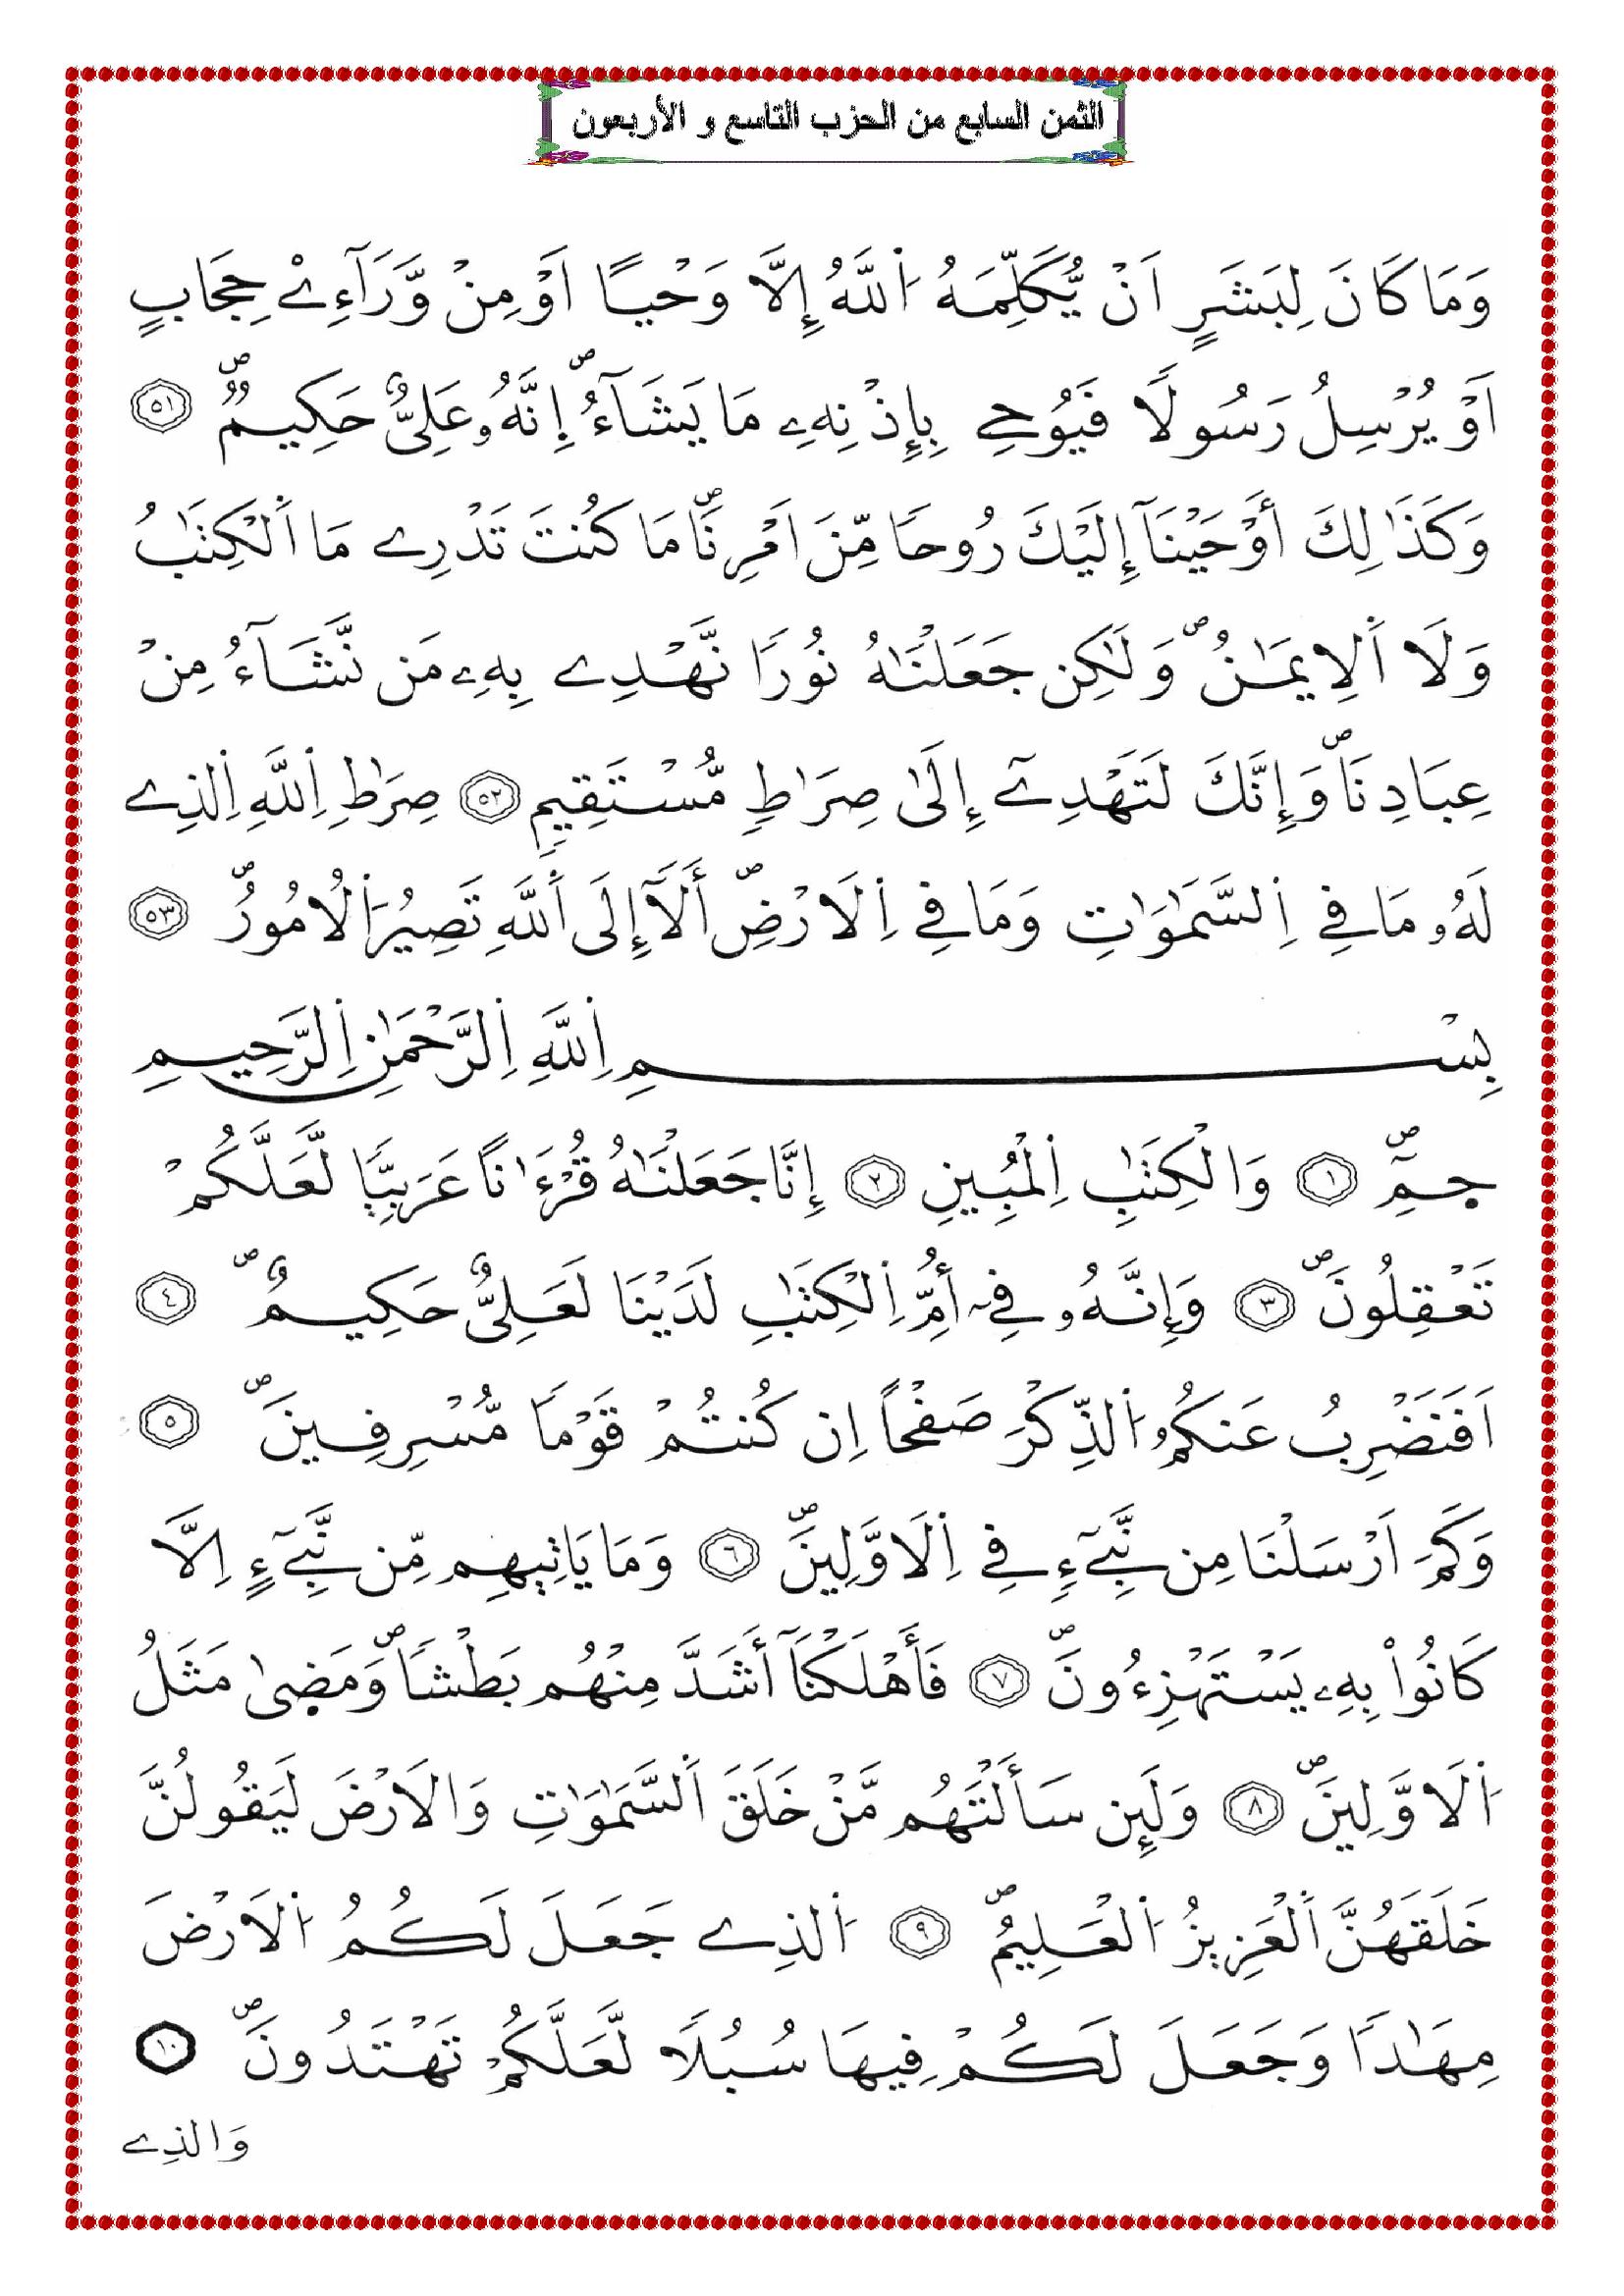 الثمن السابع من الحزب التاسع و الأربعون
وَمَا كَانَ لِبَشَرٍ اَنْ يُّكَلِّمَهُ اُ۬للَّهُ إِلَّا وَحْيًا اَوْ مِنْ وَّرَآءِےْ حِجَابٍ
اَوْ يُرْسِلُ رَسُولًا فَيُوحِے بِإِذْنِهِۦ مَا يَشَآءُۖ إِنَّهُۥ عَلِىٌّ حَكِيمٌۖ ٥١
وَكَذَٰلِكَ أَوْحَيْنَآ إِلَيْكَ رُوحًا مِّنَ اَمْرِنَاۖ مَا كُنتَ تَدْرِے مَا اَ۬لْكِتَٰبُ
وَلَا اَ۬لِايمَٰنُۖ وَلَٰكِن جَعَلْنَٰهُ نُورًا نَّهْدِے بِهِۦ مَن نَّشَآءُ مِنْ
عِبَادِنَاۖ وَإِنَّكَ لَتَهْدِےٓ إِلَىٰ صِرَاطٍ مُّسْتَقِيمٍ ٥٢ صِرَٰطِ اِ۬للَّهِ اِ۬لذِے
لَهُۥ مَا فِے اِ۬لسَّمَٰوَٰتِ وَمَا فِے اِ۬لَارْضِۖ أَلَآ إِلَى اَ۬للَّهِ تَصِيرُ اُ۬لُامُورُۖ ٥٣
بِسْمِ اِ۬للَّهِ اِ۬لرَّحْمَٰنِ اِ۬لرَّحِيمِ
حمِٓۖ ١ وَالْكِتَٰبِ اِ۬لْمُبِينِ ٢ إِنَّا جَعَلْنَٰهُ قُرْءَٰنًا عَرَبِيًّا لَّعَلَّكُمْ
تَعْقِلُونَۖ ٣ وَإِنَّهُۥ فِےٓ أُمِّ اِ۬لْكِتَٰبِ لَدَيْنَا لَعَلِىٌّ حَكِيمٌۖ ٤
اَفَنَضْرِبُ عَنكُمُ اُ۬لذِّكْرَ صَفْحًا اِن كُنتُمْ قَوْمًا مُّسْرِفِينَۖ ٥
وَكَمَ اَرْسَلْنَا مِن نَّبِےٓءٍ فِے اِ۬لَاوَّلِينَۖ ٦ وَمَا يَاتِيهِم مِّن نَّبِےٓءٍ اِلَّا
كَانُواْ بِهِۦ يَسْتَهْزِءُونَۖ ٧ فَأَهْلَكْنَآ أَشَدَّ مِنْهُم بَطْشًاۖ وَمَضِىٰ مَثَلُ
اُ۬لَاوَّلِينَۖ ٨ وَلَئِن سَأَلْتَهُم مَّنْ خَلَقَ اَ۬لسَّمَٰوَٰتِ وَالَارْضَ لَيَقُولُنَّ
خَلَقَهُنَّ اَ۬لْعَزِيزُ اُ۬لْعَلِيمُۖ ٩ اُ۬لذِے جَعَلَ لَكُمُ اُ۬لَارْضَ
مِهَٰدًا وَجَعَلَ لَكُمْ فِيهَا سُبُلًا لَّعَلَّكُمْ تَهْتَدُونَۖ ١٠
وَالذِے